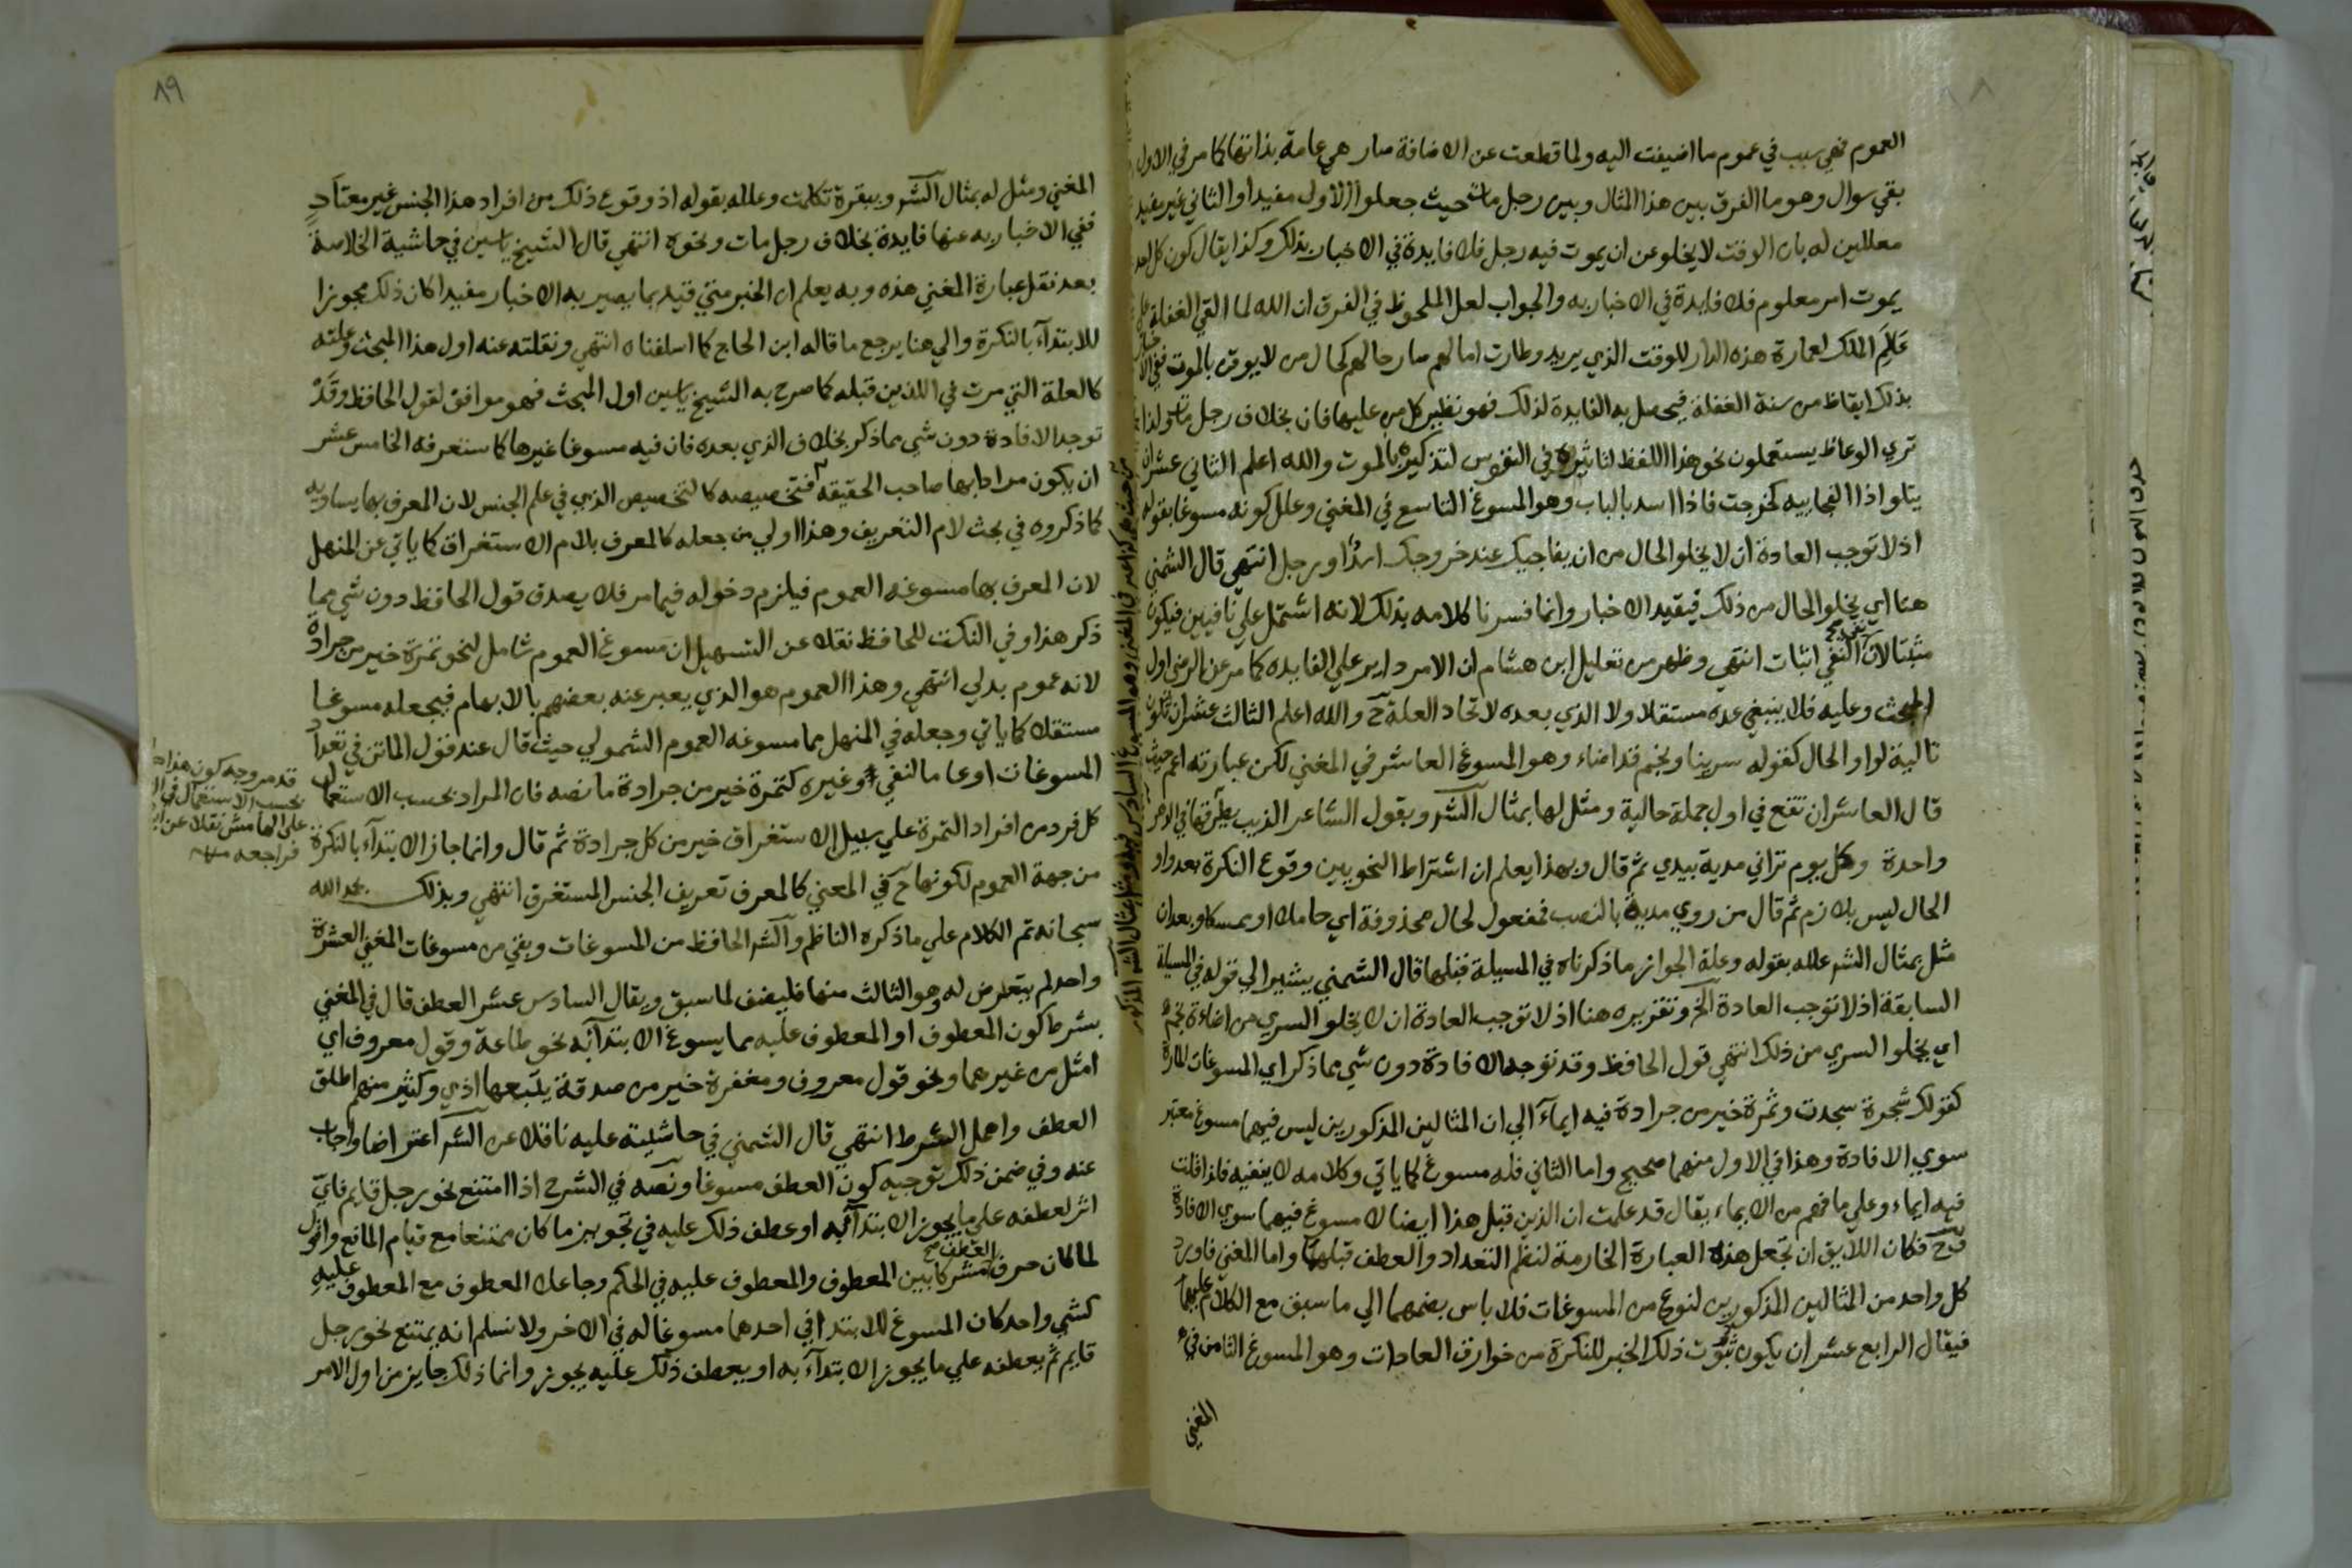 العموم فهي سبب في عموم ما اضيفت اليه ولما قطعت عن الاضافة صار هي عامة بذاتها كما مر في الاول
بقي سوال وهو ما الفرق بين هذا المثال وبين رجل مات حيث جعلوا الاول مفيدا والثاني غير مفيد
معللين له بان الوقت لا يخلو عن ان يموت فيه رجل فلا فايدة في الاخبار بذلك وكذا يقال كون كل احد
يموت امر معلوم فلا فايدة في الاخبار به والجواب لعل الملحوظ في الفرق ان الله لما القي الغفلة علي
عالم الملك لعمارة هذه الدار للوقت الذي يريد وطارت امالهم صار حالهم كحال من لا يوقن بالموت ففي الا
بذلك ايقاظ من سنة الغفلة فيحصل به الفايدة لذلك فهو نظير كل من عليها فان بخلاف رجل مات ولذا
تري الوعاظ يستعملون نحو هذا اللفظ لتاثيره في النفوس لتذكيره بالموت والله اعلم الثاني عشر ان
يتلو اذا الفجاييه كخرجت فاذا اسد بالباب وهو المسوغ التاسع في المغني وعلل كونه مسوغا بقوله
اذ لا توجب العادة ان لا يخلو الحال من ان يفاجيك عند خروجك اسد او رجل انتهي قال الشمني
هنا اي يخلو الحال من ذلك فيفيد الاخبار وانما فسرنا كلامه بذلك لانه اشتمل علي نافيين فيكون
مثبتا لان نفي النفي اثبات انتهي وظهر من تعليل ابن هشام ان الامر داير علي الفايده كما مر عن الرضي اول
المبحث وعليه فلا ينبغي عده مستقلا ولا الذي بعده لاتحاد العلة ح والله اعلم الثالث عشر ان تكون
تالية لواو الحال كقوله سرينا ونجم قد اضاء وهو المسوغ العاشر في المغني لكن عبارته اعم حيث
قال العاشر ان تقع في اول جملة حالية ومثل لها بمثال الشر وبقول الشاعر الذيب يطرقها في الدهر
واحدة وكل يوم تراني مدية بيدي ثم قال وبهذا يعلم ان اشتراط النحويين وقوع النكرة بعد واو
الحال ليس بلازم ثم قال من روي مدية بالنصب فمفعول لحال محذوفة اي حاملا او ممسكا وبعد ان
مثل بمثال الشر علله بقوله وعلة الجواز ما ذكرناه في المسيلة قبلها قال الشمني يشير الي قوله في المسيلة
السابقة اذ لا توجب العادة الخ وتقريره هنا اذ لا توجب العادة ان لا يخلو السري من اضاءة نجم
اي يخلو السري من ذلك انتهي قول الحافظ وقد توجد الافادة دون شي مما ذكر اي المسوغات المارة
كقولك شجرة سجدت وتمرة خير من جرادة فيه ايماآ الي ان المثالين المذكورين ليس فيهما مسوغ معتبر
سوي الافادة وهذا في الاول منهما صحيح واما الثاني فله مسوغ كما ياتي وكلامه لا ينفيه فلذا قلت
فيه ايماء وعلي ما فهم من الايماء يقال قد علمت ان الذين قبل هذا ايضا لا مسوغ فيهما سوي الافادة
فح فكان اللايق ان تجعل هذه العبارة الخارمة لنظم التعداد والعطف قبلهما واما المغني فاورد
كل واحد من المثالين المذكورين لنوع من المسوغات فلا باس بضمهما الي ما سبق مع الكلام عليهما
فيقال الرابع عشر ان يكون ثبوت ذلك الخبر للنكرة من خوارق العادات وهو المسوغ الثامن في
المغني
٨٩
المغني ومثل له بمثال الشر وببقرة تكلمت وعلله بقوله اذ وقوع ذلك من افراد هذا الجنس غير معتاد
ففي الاخبار به عنها فايدة بخلاف رجل مات ونحوه انتهي قال الشيخ ياسين في حاشية الخلاصة
بعد نقل عبارة المغني هذه وبه يعلم ان الخبر متي قيد بما يصير به الاخبار مفيدا كان ذلك مجوزا
للابتدآء بالنكرة والي هنا يرجع ما قاله ابن الحاج كما اسلفناه انتهي ونقلته عنه اول هذا المبحث وعلته
كالعلة التي مرت في اللذين قبله كما صرح به الشيخ ياسين اول المبحث فهو موافق لقول الحافظ وقد
توجد الافادة دون شي مما ذكر بخلاف الذي بعده فان فيه مسوغا غيرها كما ستعرفه الخامس عشر
ان يكون مرادا بها صاحب الحقيقة فتخصيصه كالتخصيص الذي في علم الجنس لان المعرف بها يساويه
كما ذكروه في بحث لام التعريف وهذا اولي من جعله كالمعرف بلام الاستغراق كما ياتي عن المنهل
لان المعرف بها مسوغه العموم فيلزم دخوله فيما مر فلا يصدق قول الحافظ دون شي مما
ذكر هذا وفي النكت للحافظ نقلا عن التسهيل ان مسوغ العموم شامل لنحو تمرة خير من جرادة
لانه عموم بدلي انتهي وهذا العموم هو الذي يعبر عنه بعضهم بالابهام فيجعله مسوغا
مستقلا كما ياتي وجعله في المنهل مما مسوغه العموم الشمولي حيث قال عند قول الماتن في تعداد
المسوغات او عاما لنفي وغيره كتمرة خير من جرادة ما نصه فان المراد بحسب الاستعمال
كل فرد من افراد التمرة علي سبيل الاستغراق خير من كل جرادة ثم قال وانما جاز الابتدآء بالنكرة
من جهة العموم لكونها ح في المعني كالمعرف تعريف الجنس المستغرق انتهي وبذلك بحمد الله
سبحانه تم الكلام علي ما ذكره الناظم والشر الحافظ من المسوغات وبقي من مسوغات المغني العشرة
واحد لم يتعرض له وهو الثالث منها فليضف لما سبق ويقال السادس عشر العطف قال في المغني
بشرط كون المعطوف او المعطوف عليه مما يسوغ الابتدآ به نحو طاعة وقول معروف اي
امثل من غيرهما ونحو قول معروف ومغفرة خير من صدقة يتبعها اذي وكثير منهم اطلق
العطف واهمل الشرط انتهي قال الشمني في حاشيته عليه ناقلا عن الشر اعتراضا واجاب
عنه وفي ضمن ذلك توجيه كون العطف مسوغا ونصه في الشرح اذا امتنع نحو رجل قايم فاي
اثر لعطفه علي ما يجوز الابتدآ به او عطف ذلك عليه في تجويز ما كان ممتنعا مع قيام المانع واقول
لما كان حرف العطف صح مشركا بين المعطوف والمعطوف عليه في الحكم وجاعلا المعطوف مع المعطوف عليه
كشي واحد كان المسوغ للابتدا في احدهما مسوغا له في الاخر ولا نسلم انه يمتنع نحو رجل
قايم ثم بعطفه علي ما يجوز الابتدآء به او بعطف ذلك عليه يجوز وانما ذلك جايز من اول الامر
قد مر وجه كون هذا
بحسب الاستعمال في
علي الهامش نقلا عن
فراجعه منه